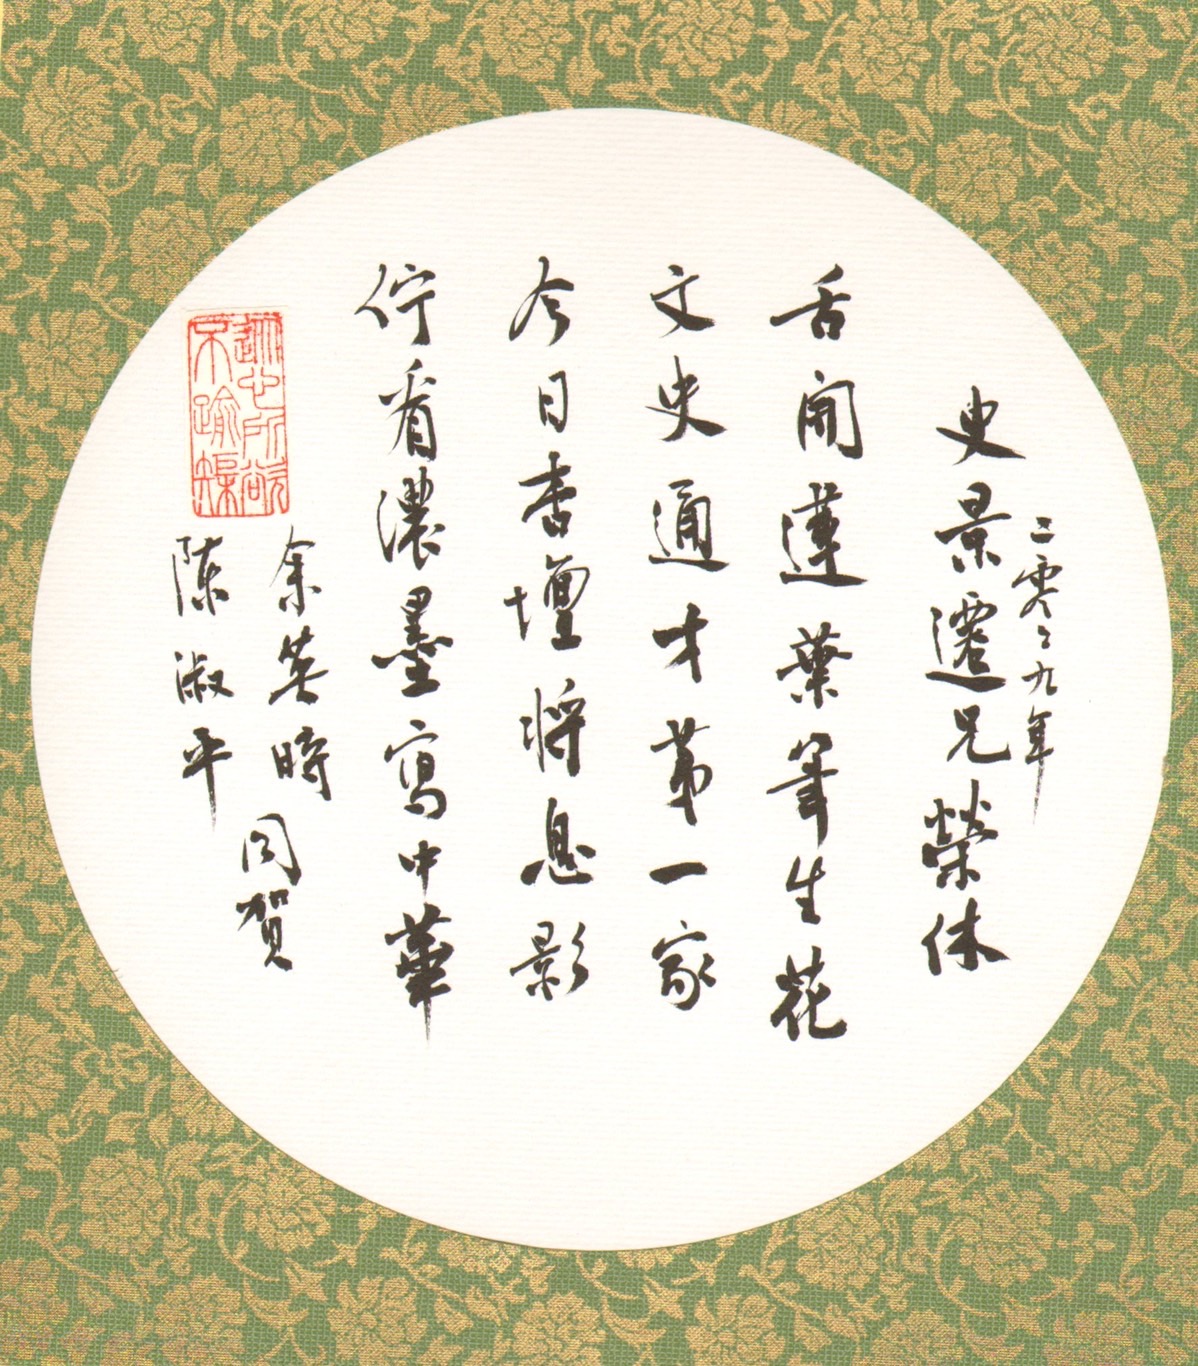 二零零九年
史景遷兄榮休
舌開蓮葉筆生花
文史通才第一家
今日杏壇將息影
佇看濃墨寫中華
余英時
陳淑平
同賀
從心所欲
不踰矩